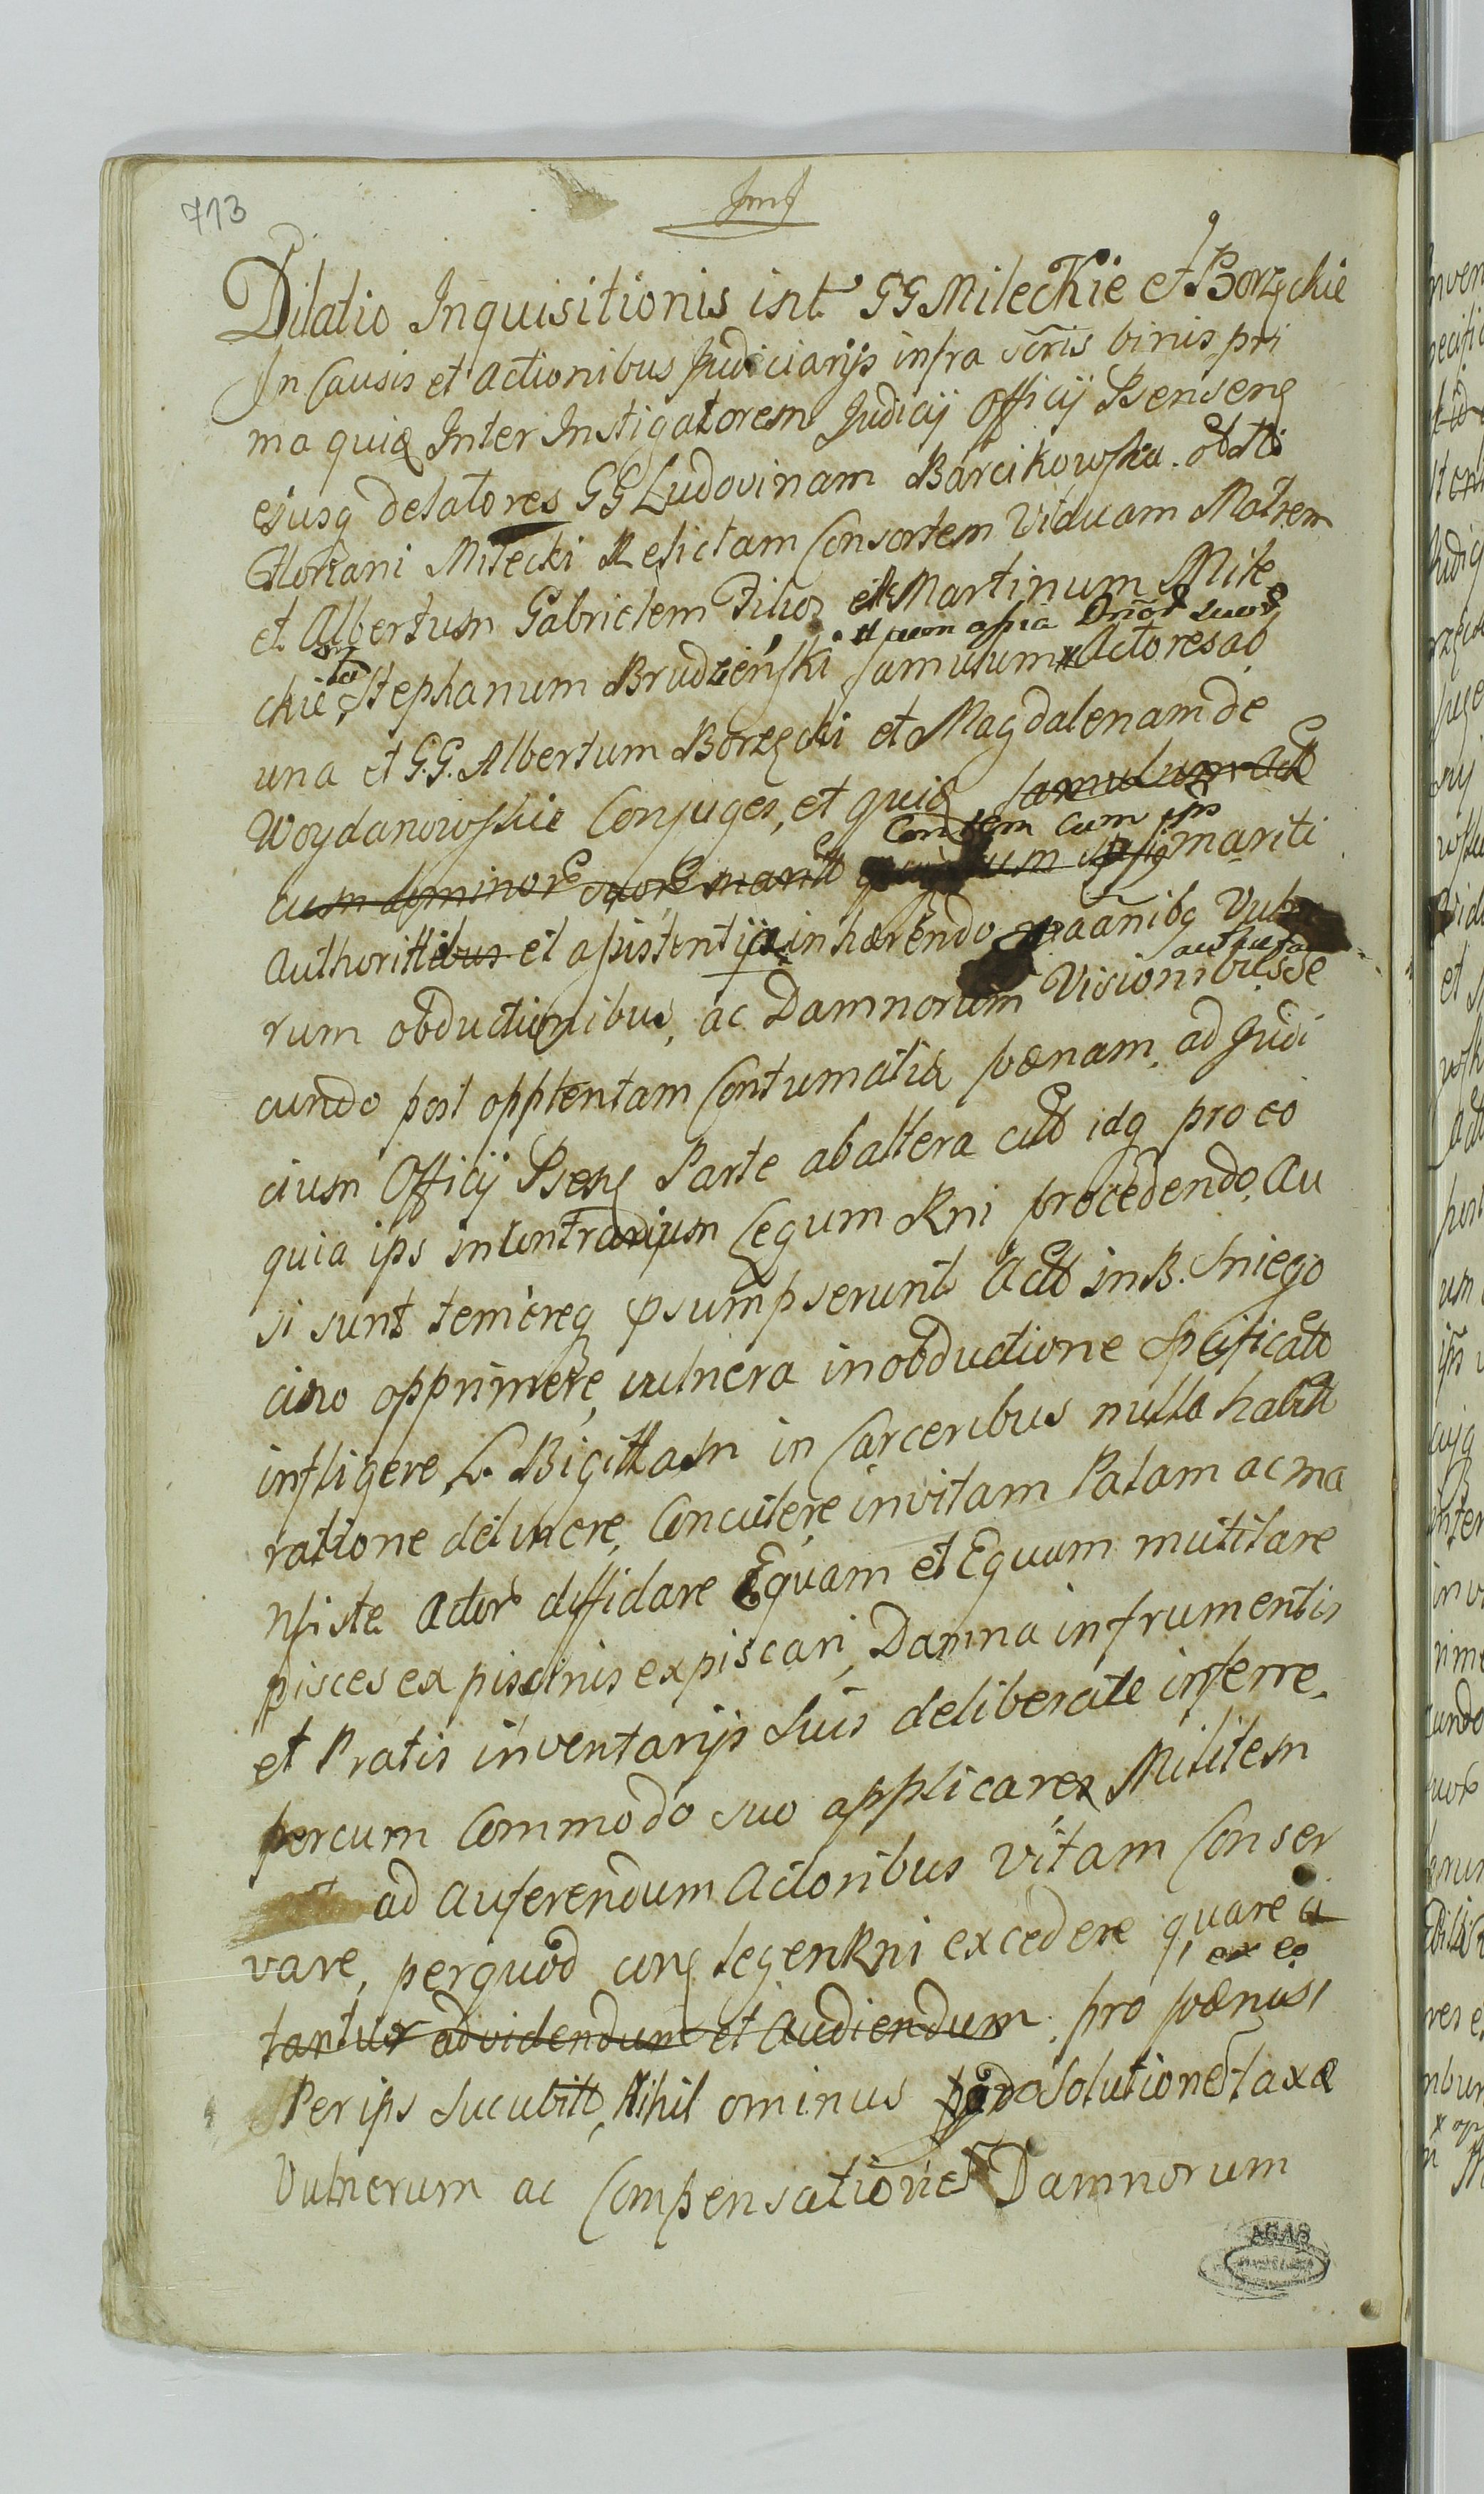 713
JmJ
Dilatio Inquisitionis int GG Mileckie et Borzęckie
In Causis et Actionibus Judiciarijs infra scris binis pri
ma quidę Inter Instigatorem Judicij Officij Psensenę
ejusq delatores GG Ludovinam Barcikowska obtti
Floriani Milecki Relictam Consortem Viduam Matrem
et Albertum Gabrielem Filios et Martinum Mile
et cum assia Dnor suor
ckie Stephanum Brudzeński famulum Actores ab
una et G.G. Albertum Borzęcki et Magdalenam de
Woydanowskie Conjuges, et quidę famulum act
Condem cum ips
cum dominore suore maritt mariti
Authorittibus et assistentijs inhærendo Vulne
rum obductionibus, ac Damnorum Visionibus se
cundo post opptentam Contumatiæ pœnam, ad Judi
cium Officij Psenę Parte ab altera citt idq pro eo
quia ips in Contrarium Legum Rni procedendo, Au
si sunt temereq psumpserunt Actt in B. Sniego
cino opprimere, vulnera in obductione Spcificatt
infligere, L. Bigittam in Carceribus nulla habitt
ratione detinere, Concutere invitam Palam ac ma
nfiste Actor diffidare Equam et Equum mutilare
pisces ex piscinis expiscari, Damna in frumentis
et Pratis inventarijs Suis deliberate inferre,
percum Commodo suo applicare Militem
ad Auferendum Actoribus Vitam Conser
vare, perquod cunę legem Rni excedere quare ci
ex eo
tantur ad videndum et Audiendum, pro pœnis
Per ips Sucubitt, Nihil ominus Solutione taxæ
Vulnerum ac Compensatione Damnorum
AGAS